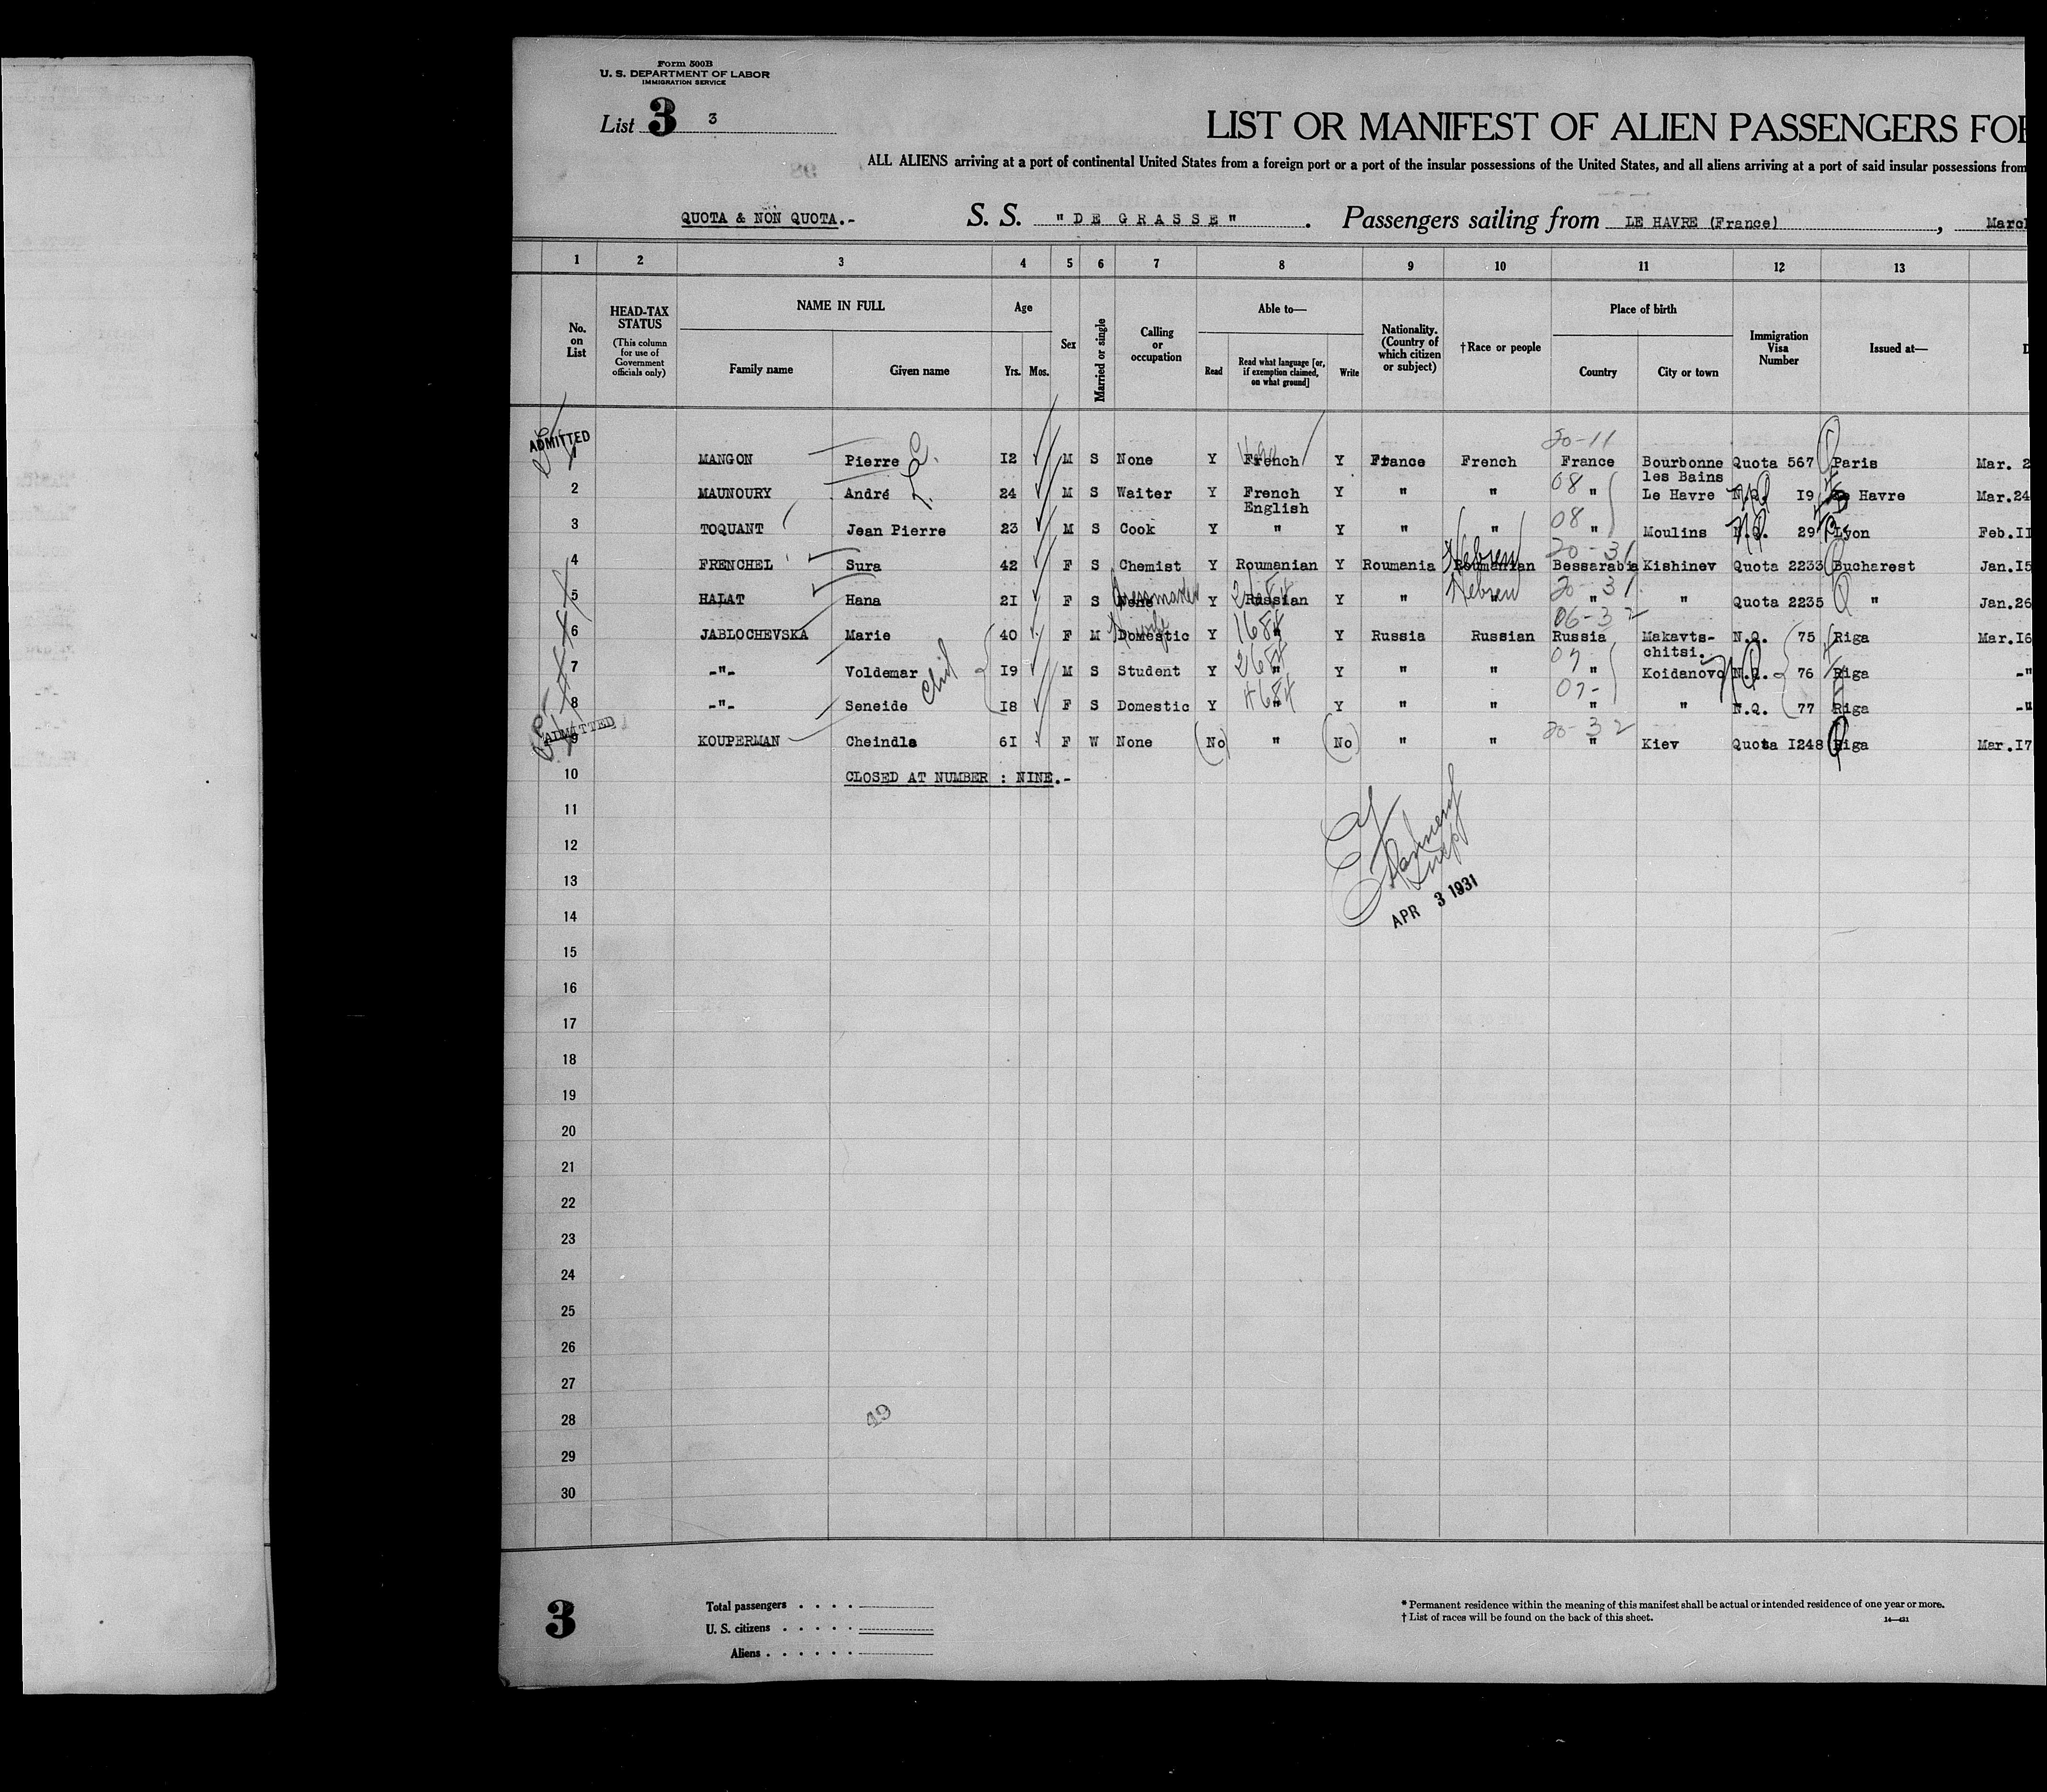 Form 500B
U. S. DEPARTMENT OF LABOR
IMMIGRATION SERVICE
List 3 3
LIST OR MANIFEST OF ALIEN PASSENGERS FOR
ALL ALIENS arriving at a port of continental United States from a foreign port or a port of the insular possessions of the United States, and all aliens arriving at a port of said insular possessions from
QUOTA & NON QUOTA.- S. S. "DE GRASSE". Passengers sailing from LE HAVRE (France), March
1 2 3 4 5 6 7 8 9 10 11 12 13
No. on List
HEAD-TAX STATUS
(This column for use of Government officials only)
NAME IN FULL
Family name Given name
Age
Yrs. Mos.
Sex
Married or single
Calling or occupation
Able to—
Read Read what language [or, if exemption claimed, on what ground] Write
Nationality. (Country of which citizen or subject)
†Race or people
Place of birth
Country City or town
Immigration Visa Number
Issued at—
ADMITTED
20-11
1 MANGON Pierre 12 M S None Y French Y France French France Bourbonne les Bains Quota 567 Paris Mar. 2
08
2 MAUNOURY André 24 M S Waiter Y French English Y " " " Le Havre N.Q. 19 Le Havre Mar.24
08
3 TOQUANT Jean Pierre 23 M S Cook Y " Y " " " Moulins N.Q. 29 Lyon Feb.II
Hebrew 20-31
4 FRENCHEL Sura 42 F S Chemist Y Roumanian Y Roumania Roumanian Bessarabia Kishinev Quota 2233 Bucharest Jan.I5
Dressmaker Hebrew 20-31
5 HALAT Hana 2I F S None Y Russian Y " " " " Quota 2235 " Jan.26
H wife 1684 06-32
6 JABLOCHEVSKA Marie 40 F M Domestic Y " Y Russia Russian Russia Makavts-chitsi. N.Q. 75 Riga Mar.I6
2684 07
7 -"- Voldemar I9 M S Student Y " Y " " " Koidanovo N.Q. 76 Riga -"
4684 07-
8 -"- Seneide I8 F S Domestic Y " Y " " " " N.Q. 77 Riga -"
ADMITTED
20-32
9 KOUPERMAN Cheindla 6I F W None (No) " (No) " " " Kiev Quota I248 Riga Mar.I7
10 CLOSED AT NUMBER : NINE.-
11
12
13
APR 3 1931
14
15
16
17
18
19
20
21
22
23
24
25
26
27
28
49
29
30
3
Total passengers . . . .
U. S. citizens . . . . .
Aliens . . . . . .
* Permanent residence within the meaning of this manifest shall be actual or intended residence of one year or more.
† List of races will be found on the back of this sheet.
14—421